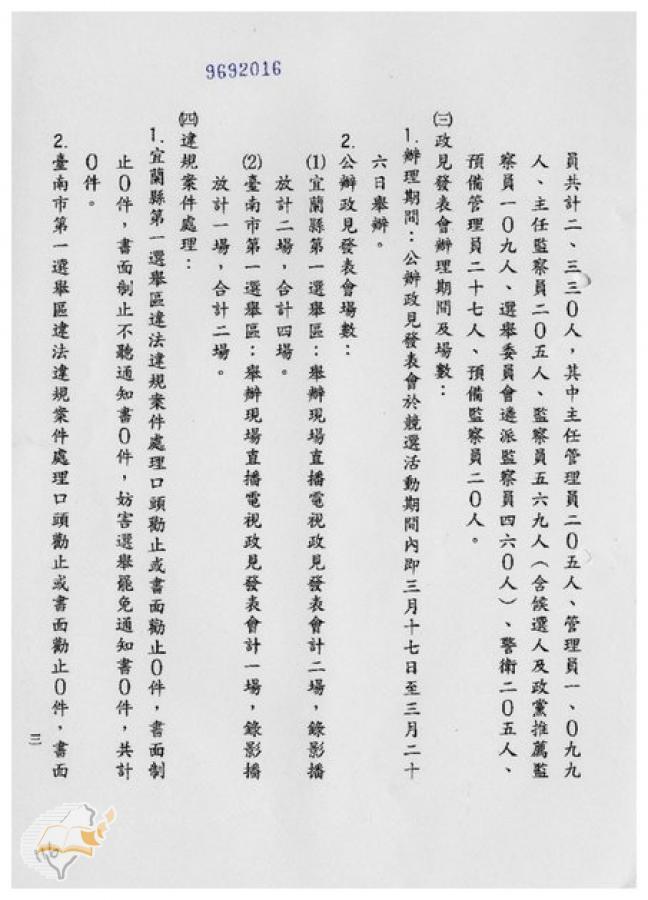 9692016
員共計二、三三０人，其中主任管理員二０五人、管理員一、０九九
人、主任監察員二０五人、監察員五六九人（含候選人及政黨推薦監
察員一０九人、選舉委員會遴派監察員四六０人）、警衛二０五人、
預備管理員二十七人、預備監察員二０人。
㈢政見發表會辦理期間及場數：
1.辦理期間：公辦政見發表會於競選活動期間內即三月十七日至三月二十
六日舉辦。
2.公辦政見發表會場數：
⑴宜蘭縣第一選舉區：舉辦現場直播電視政見發表會計二場，錄影播
放計二場，合計四場。
⑵臺南市第一選舉區：舉辦現場直播電視政見發表會計一場，錄影播
放計一場，合計二場。
㈣違規案件處理：
1.宜蘭縣第一選舉區違法違規案件處理口頭勸止或書面勸止０件，書面制
止０件，書面制止不聽通知書０件，妨害選舉罷免通知書０件，共計
０件。
2.臺南市第一選舉區違法違規案件處理口頭勸止或書面勸止０件，書面
三